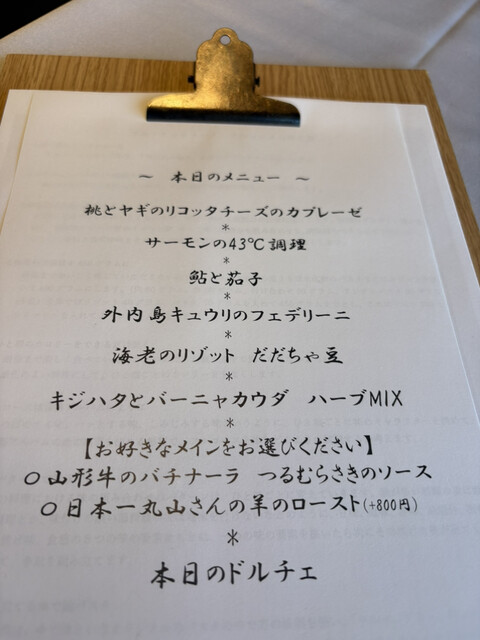 ～ 本日のメニュー ～
桃とヤギのリコッタチーズのカプレーゼ
*
サーモンの43℃調理
*
鮎と茄子
*
外内島キュウリのフェデリーニ
*
海老のリゾット だだちゃ豆
*
キジハタとバーニャカウダ ハーブMIX
*
【お好きなメインをお選びください】
○山形牛のバチナーラ つるむらさきのソース
○日本一丸山さんの羊のロースト(+800円)
*
本日のドルチェ